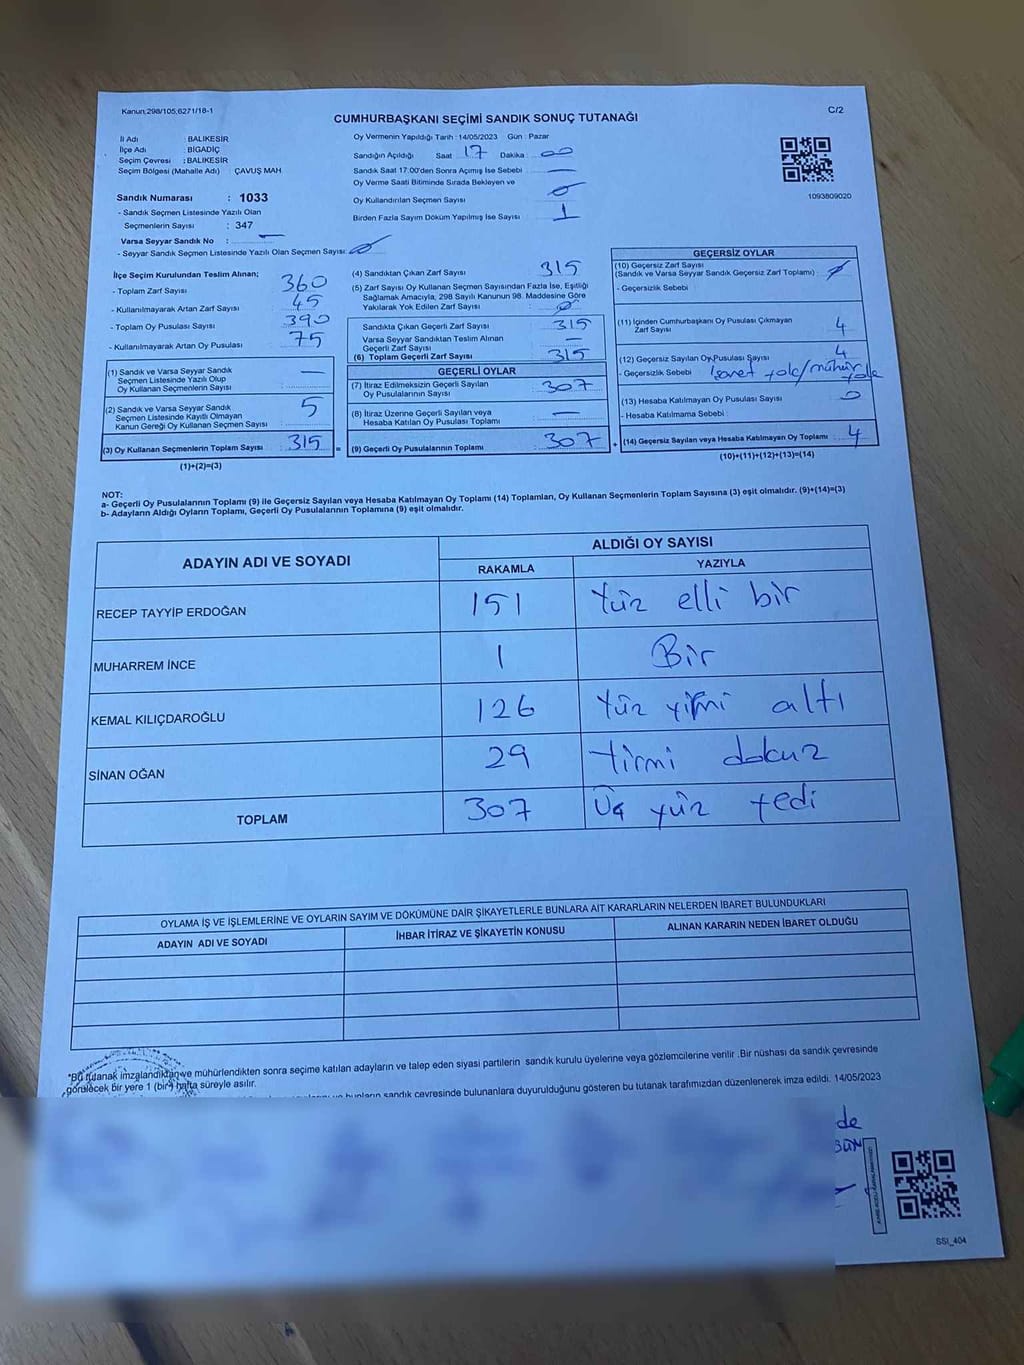 Kanun;298/105;6271/18-1
C/2
CUMHURBAŞKANI SEÇİMİ SANDIK SONUÇ TUTANAĞI
İl Adı : BALIKESİR
İlçe Adı : BİGADİÇ
Seçim Çevresi : BALIKESİR
Seçim Bölgesi (Mahalle Adı) : ÇAVUŞ MAH
Sandık Numarası : 1033
- Sandık Seçmen Listesinde Yazılı Olan
Seçmenlerin Sayısı : 347
Varsa Seyyar Sandık No : —
- Seyyar Sandık Seçmen Listesinde Yazılı Olan Seçmen Sayısı:
Oy Vermenin Yapıldığı Tarih : 14/05/2023 Gün : Pazar
Sandığın Açıldığı Saat 17 Dakika : 00
Sandık Saat 17.00'den Sonra Açımış İse Sebebi —
Oy Verme Saati Bitiminde Sırada Bekleyen ve
Oy Kullandırılan Seçmen Sayısı
Birden Fazla Sayım Döküm Yapılmış İse Sayısı 1
1093809020
İlçe Seçim Kurulundan Teslim Alınan;
- Toplam Zarf Sayısı : 360
- Kullanılmayarak Artan Zarf Sayısı : 45
- Toplam Oy Pusulası Sayısı : 390
- Kullanılmayarak Artan Oy Pusulası : 75
(1) Sandık ve Varsa Seyyar Sandık
Seçmen Listesinde Yazılı Olup
Oy Kullanan Seçmenlerin Sayısı : —
(2) Sandık ve Varsa Seyyar Sandık
Seçmen Listesinde Kayıtlı Olmayan
Kanun Gereği Oy Kullanan Seçmen Sayısı : 5
(3) Oy Kullanan Seçmenlerin Toplam Sayısı : 315 =
(1)+(2)=(3)
(4) Sandıktan Çıkan Zarf Sayısı : 315
(5) Zarf Sayısı Oy Kullanan Seçmen Sayısından Fazla İse, Eşitliği
Sağlamak Amacıyla, 298 Sayılı Kanunun 98. Maddesine Göre
Yakılarak Yok Edilen Zarf Sayısı
Sandıkta Çıkan Geçerli Zarf Sayısı : 315
Varsa Seyyar Sandıktan Teslim Alınan
Geçerli Zarf Sayısı : —
(6) Toplam Geçerli Zarf Sayısı : 315
GEÇERLİ OYLAR
(7) İtiraz Edilmeksizin Geçerli Sayılan
Oy Pusulalarının Sayısı : 307
(8) İtiraz Üzerine Geçerli Sayılan veya
Hesaba Katılan Oy Pusulası Toplamı : —
(9) Geçerli Oy Pusulalarının Toplamı : 307 +
GEÇERSİZ OYLAR
(10) Geçersiz Zarf Sayısı
(Sandık ve Varsa Seyyar Sandık Geçersiz Zarf Toplamı) :
- Geçersizlik Sebebi :
(11) İçinden Cumhurbaşkanı Oy Pusulası Çıkmayan
Zarf Sayısı : 4
(12) Geçersiz Sayılan Oy Pusulası Sayısı : 4
- Geçersizlik Sebebi : İsaret yok/mühür yok
(13) Hesaba Katılmayan Oy Pusulası Sayısı : 0
- Hesaba Katılmama Sebebi :
(14) Geçersiz Sayılan veya Hesaba Katılmayan Oy Toplamı : 4
(10)+(11)+(12)+(13)=(14)
NOT:
a- Geçerli Oy Pusulalarının Toplamı (9) ile Geçersiz Sayılan veya Hesaba Katılmayan Oy Toplamı (14) Toplamları, Oy Kullanan Seçmenlerin Toplam Sayısına (3) eşit olmalıdır. (9)+(14)=(3)
b- Adayların Aldığı Oyların Toplamı, Geçerli Oy Pusulalarının Toplamına (9) eşit olmalıdır.
ADAYIN ADI VE SOYADI
ALDIĞI OY SAYISI
RAKAMLA YAZIYLA
RECEP TAYYİP ERDOĞAN 151 Yüz elli bir
MUHARREM İNCE 1 Bir
KEMAL KILIÇDAROĞLU 126 Yüz yirmi altı
SİNAN OĞAN 29 Yirmi dokuz
TOPLAM 307 Üç yüz yedi
OYLAMA İŞ VE İŞLEMLERİNE VE OYLARIN SAYIM VE DÖKÜMÜNE DAİR ŞİKAYETLERLE BUNLARA AİT KARARLARIN NELERDEN İBARET BULUNDUKLARI
ADAYIN ADI VE SOYADI İHBAR İTİRAZ VE ŞİKAYETİN KONUSU ALINAN KARARIN NEDEN İBARET OLDUĞU
*Bu tutanak imzalandıktan ve mühürlendikten sonra seçime katılan adayların ve talep eden siyasi partilerin sandık kurulu üyelerine veya gözlemcilerine verilir .Bir nüshası da sandık çevresinde
görülecek bir yere 1 (bir) hafta süreyle asılır.
bunların sandık çevresinde bulunanlara duyurulduğunu gösteren bu tutanak tarafımızdan düzenlenerek imza edildi. 14/05/2023
de
SSI_404